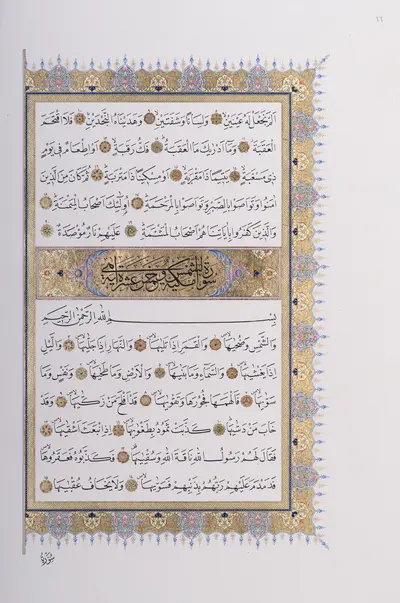 اَلَمْ نَجْعَلْ لَهُ عَيْنَيْنِ وَلِسَانًا وَشَفَتَيْنِ وَهَدَيْنَاهُ النَّجْدَيْنِ فَلَا اقْتَحَمَ
الْعَقَبَةَ وَمَا اَدْرٰيكَ مَا الْعَقَبَةُ فَكُّ رَقَبَةٍ اَوْ اِطْعَامٌ فِي يَوْمٍ
ذِي مَسْغَبَةٍ يَتِيمًا ذَا مَقْرَبَةٍ اَوْ مِسْكِينًا ذَا مَتْرَبَةٍ ثُمَّ كَانَ مِنَ الَّذِينَ
اٰمَنُوا وَتَوَاصَوْا بِالصَّبْرِ وَتَوَاصَوْا بِالْمَرْحَمَةِ اُولٰئِكَ اَصْحَابُ الْمَيْمَنَةِ
وَالَّذِينَ كَفَرُوا بِاٰيَاتِنَا هُمْ اَصْحَابُ الْمَشْئَمَةِ عَلَيْهِمْ نَارٌ مُؤْصَدَةٌ
سورة الشمس مكية وهي خمس عشرة آية
بِسْمِ اللّٰهِ الرَّحْمٰنِ الرَّحِيمِ
وَالشَّمْسِ وَضُحٰيهَا وَالْقَمَرِ اِذَا تَلٰيهَا وَالنَّهَارِ اِذَا جَلّٰيهَا وَالَّيْلِ
اِذَا يَغْشٰيهَا وَالسَّمَاءِ وَمَا بَنٰيهَا وَالْاَرْضِ وَمَا طَحٰيهَا وَنَفْسٍ وَمَا
سَوّٰيهَا فَاَلْهَمَهَا فُجُورَهَا وَتَقْوٰيهَا قَدْ اَفْلَحَ مَنْ زَكّٰيهَا وَقَدْ
خَابَ مَنْ دَسّٰيهَا كَذَّبَتْ ثَمُودُ بِطَغْوٰيهَا اِذِ انْبَعَثَ اَشْقٰيهَا
فَقَالَ لَهُمْ رَسُولُ اللّٰهِ نَاقَةَ اللّٰهِ وَسُقْيٰيهَا فَكَذَّبُوهُ فَعَقَرُوهَا
فَدَمْدَمَ عَلَيْهِمْ رَبُّهُمْ بِذَنْبِهِمْ فَسَوّٰيهَا وَلَا يَخَافُ عُقْبٰيهَا
سورة